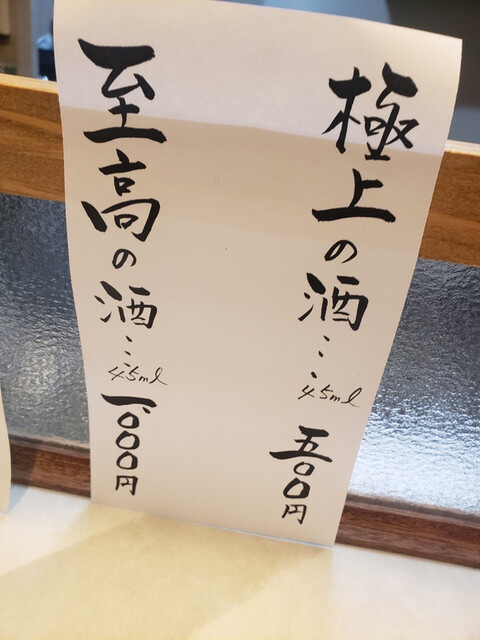 極上の酒…45ml 五〇〇円
至高の酒…45ml 一、〇〇〇円